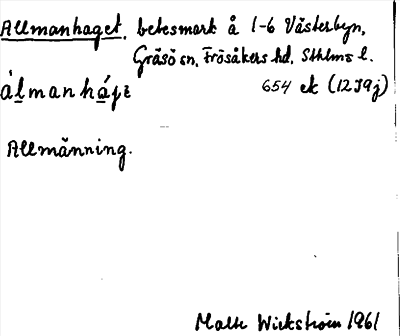 Allmanhaget, betesmark å 1-6 Västerbyn,
Gräsö sn, Frösåkers hd, Sthlms l.
654 ek (12J9j)
álmanháge
Allmänning.
Malte Wickström 1961